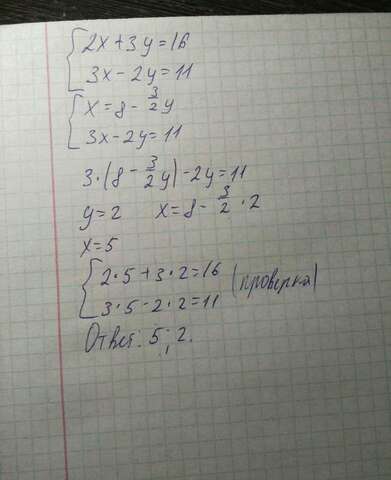 2x+3y=16
3x-2y=11
x=8-3/2y
3x-2y=11
3·(8-3/2y)-2y=11
y=2 x=8-3/2·2
x=5
2·5+3·2=16 (проверка)
3·5-2·2=11
Ответ: 5; 2.